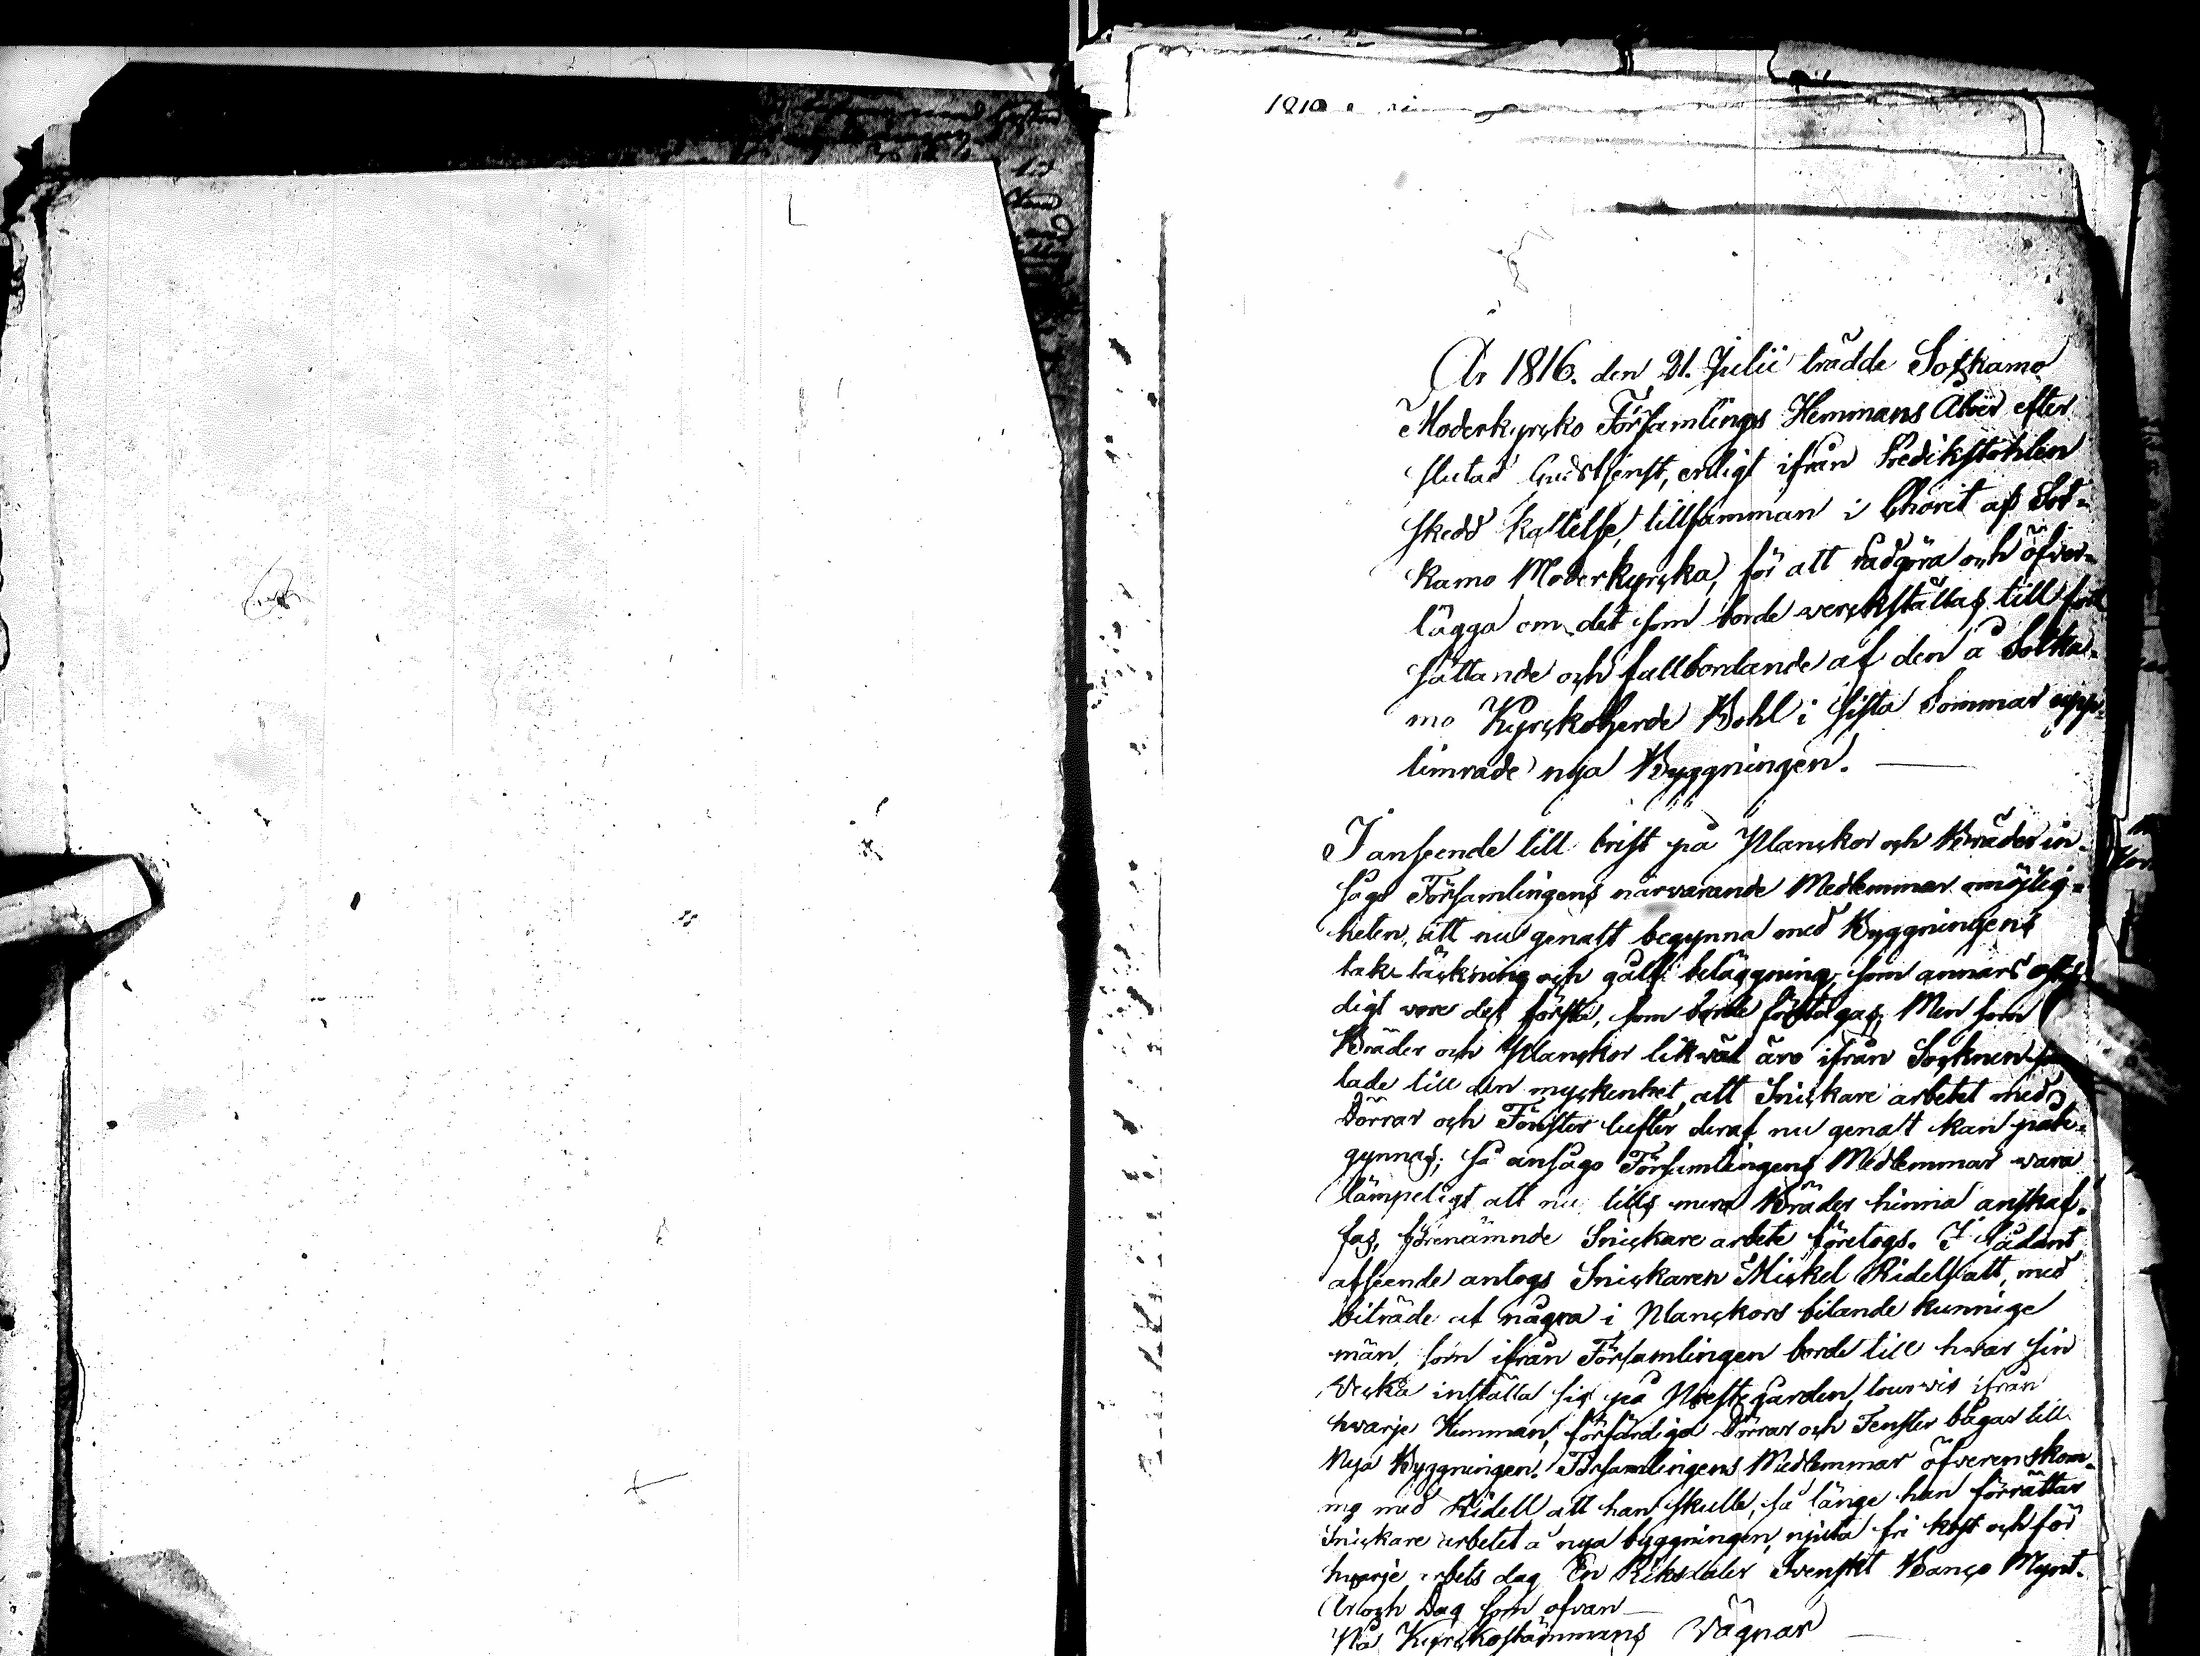 1810
År 1816. den 21. Julii trädde Sotkamo
Moderkyrcko Församlings Hemmans Åboer efter
slutad Gudstjenst, enligt ifrån Predikstohlen
skedd kallelse, tillsamman i Choret af Sot-
kamo Moderkyrcka, för att rådgöra och öfver-
lägga om det som borde werckställas till fort
sättande och fullbordande af den å Sotka-
mo Kyrckoherde Bohl i sista Sommar upp-
timrade nya Byggningen.
I anseende till brist på Planckor och Bräder in-
sågo Församlingens närvarande Medlemmar omöjlig-
heten, att nu genast begynna med Byggningens
tak täckning och gålf beläggning, som annars
digt wore det första, som borde företagas; Men som
Bräder och Planckor likwäl äro ifrån Socknen
lade till den myckenhet, att Snickare arbetet med
Dörrar och Fönster lufter deraf nu genast kan påbe-
gynnas; så ansågo Församlingens Medlemmar wara
lämpeligt att nu tills mera Bräder hinna anskaf-
fas, förenämnde Snickare arbete företogs. I sådant
afseende antogs Snickaren Mickel Ridell att, med
biträde af några i Planckors bilande kunnige
män, som ifrån Församlingen borde till hwar sin
Wecka inställa sig på Prestegården, tourwis ifrån
hwarje Hemman, förfärdiga Dörrar och Fenster bågar till
Nya Byggningen. Församlingens Medlemmar öfverenskom-
mo med Ridell att han skulle, så länge han förrättar
Snickare arbetet å nya byggningen, njuta fri kost och för
hwarje arbets dag En Riksdaler Svenskt Banco Mynt.
År och Dag som ofvan
På Kyrckostämmans Vägnar